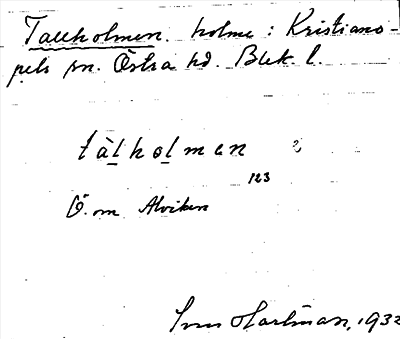 Tallholmen. holme : Kristiano-
pels sn. Östra hd. Blek. l.
tàlholmen
123
Ö. om Alviken
Sven Hartman, 1932